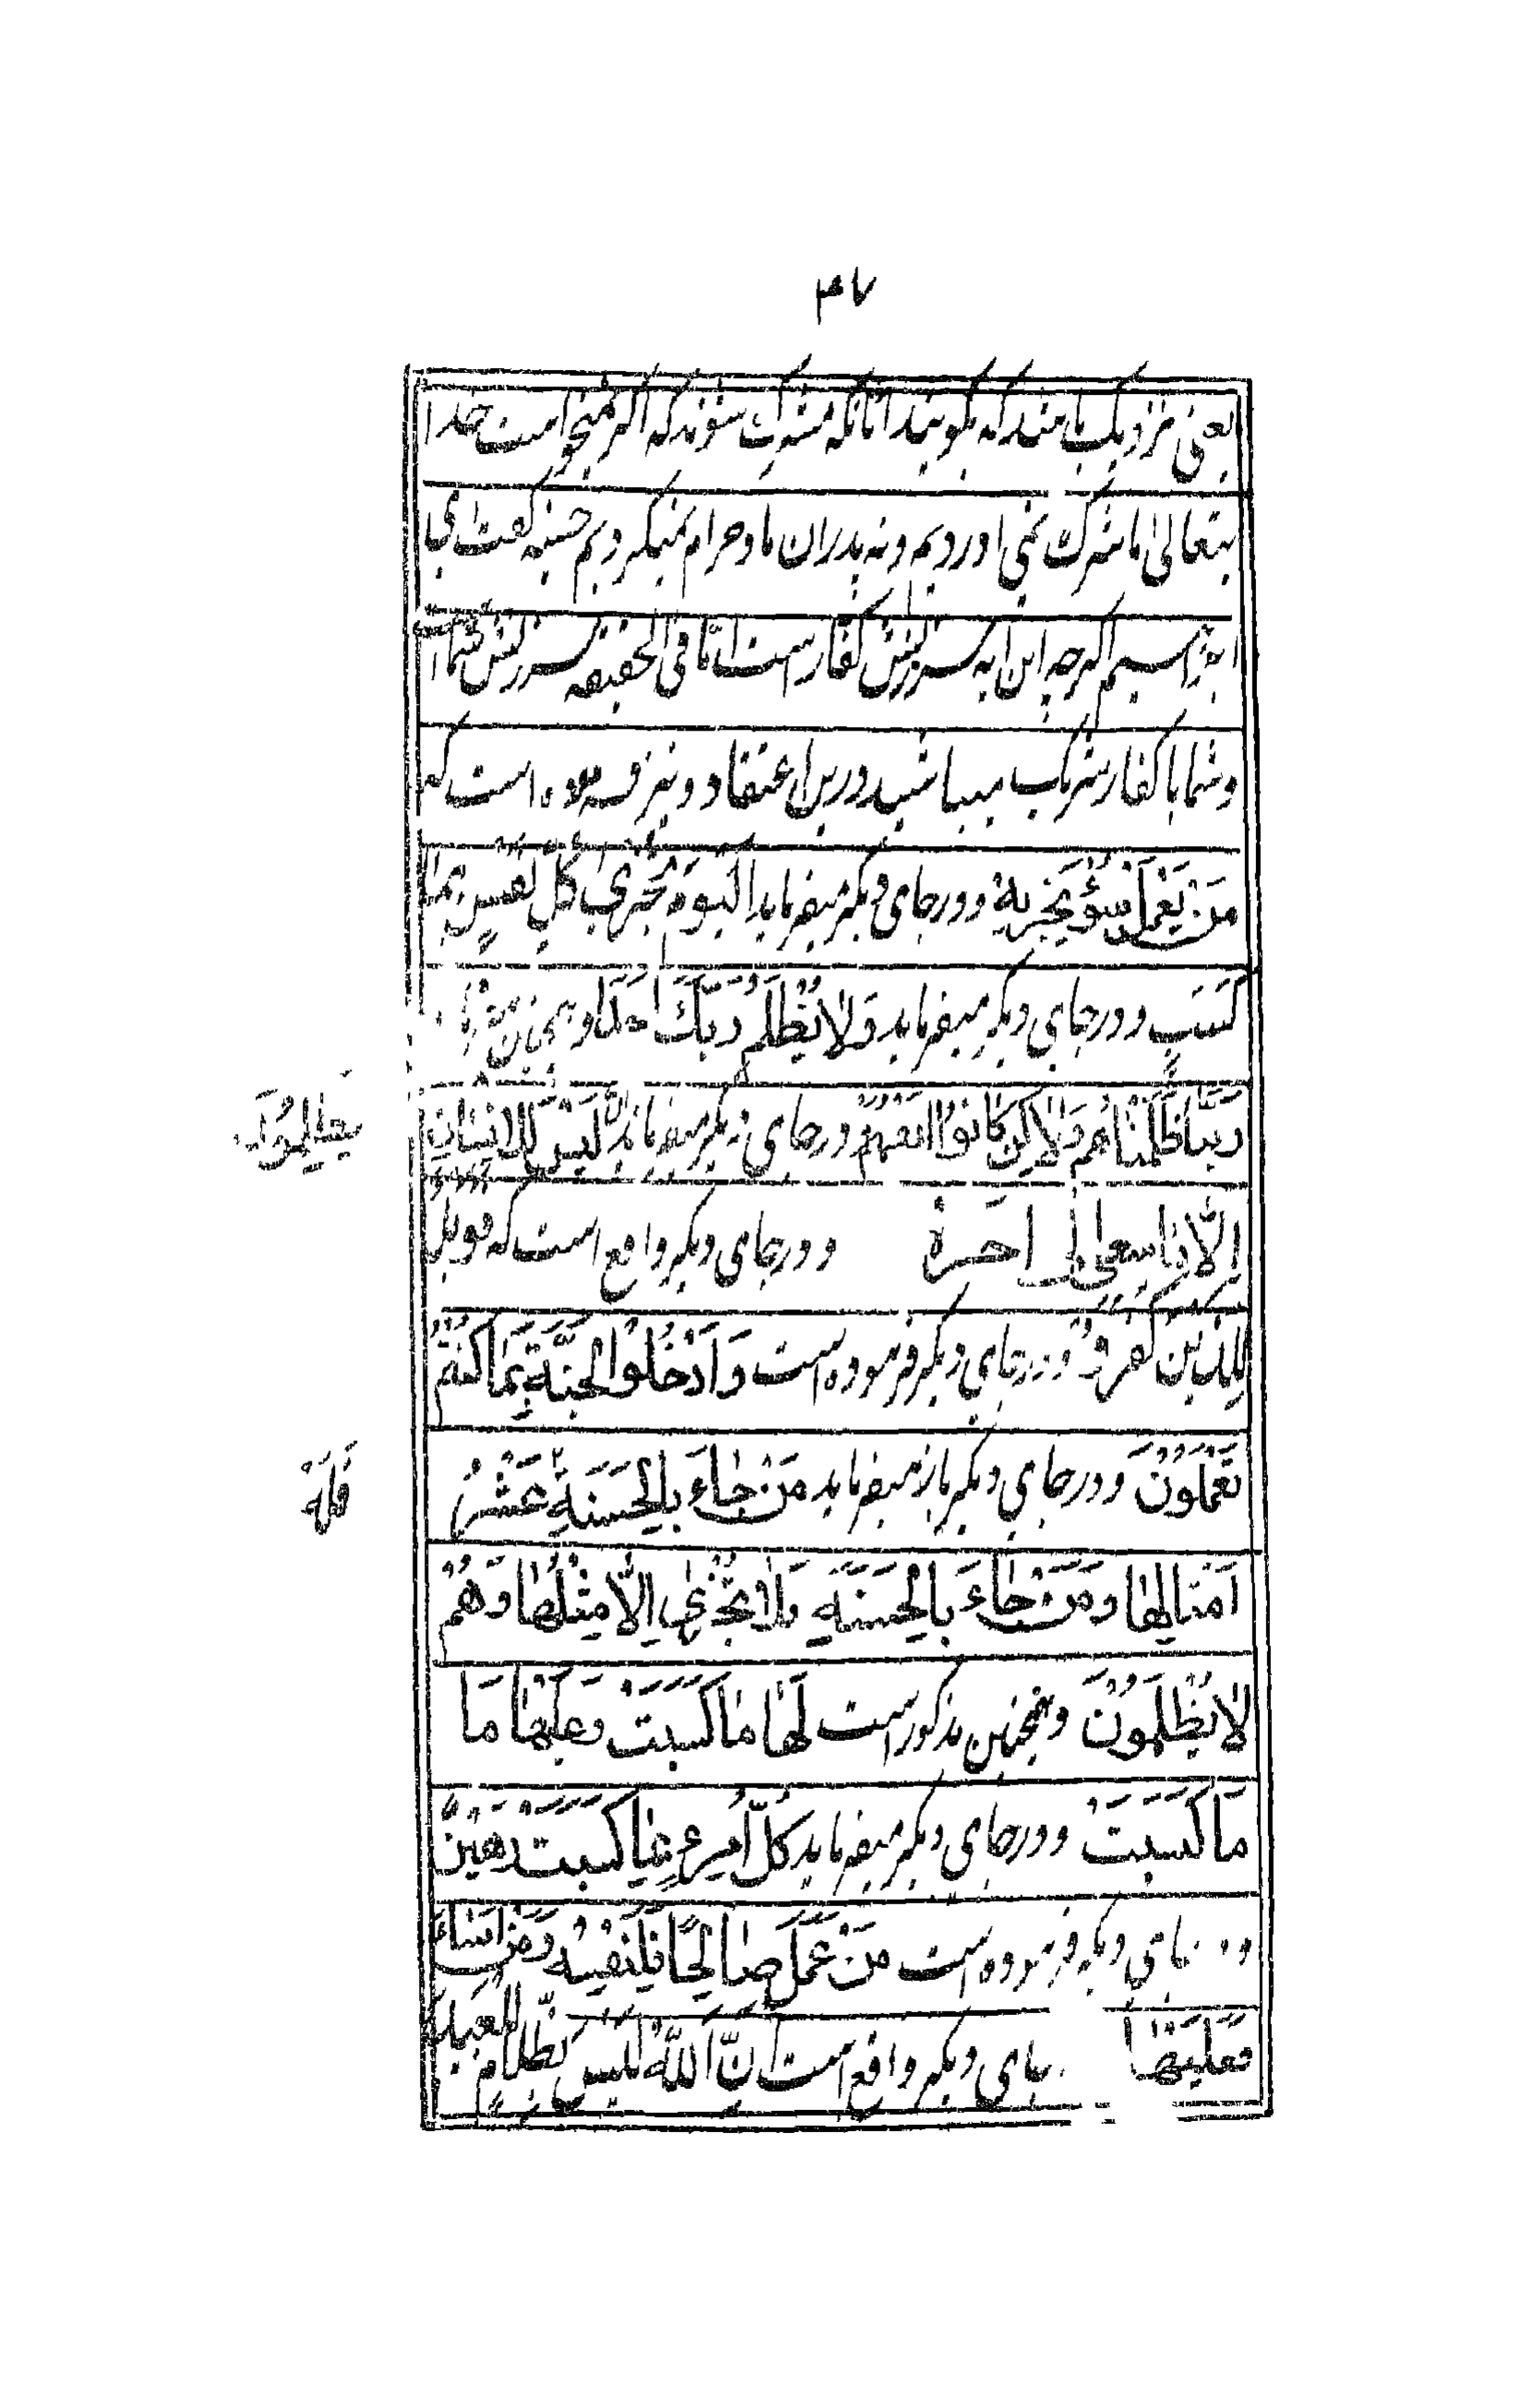 ۳۷
یعنی نزدیک باشد که بگویند انانکه مشرک شوند که اگر میخواست خدا
یتعالی ما شرک نمی اوردیم و نه پدران ما و حرام نمیکردیم حسنیه گفت ای
ابراهیم اگرچه این ایه سرزنش کفار است اما فی الحقیقه سرزنش شما
و شما با کفار شریک میباشید درین اعتقاد و نیز فرموده است که
مَنْ يَعْمَلْ سُوءً يُجْزَ بِهِ و درجای دیگر میفرماید اَلْيَوْمَ تُجْزٰى كُلُّ نَفْسٍ بِمَا
كَسَبَتْ و درجای دیگر میفرماید وَلٰا يَظْلِمُ رَبُّكَ اَحَدًا و همچنان
وَمٰا ظَلَمْنٰاهُمْ وَلٰاكِنْ كٰانُوا اَنْفُسَهُمْ درجای دیگر میفرماید لَيْسَ لِلْاِنْسٰانِ
اِلّٰا مٰا سَعٰى الى اخره و درجای دیگر واقع است که فَوَيْلٌ
لِلَّذِينَ كَفَرُوا و درجای دیگر فرموده است وَادْخُلُوا الْجَنَّةَ بِمٰا كُنْتُمْ
تَعْمَلُونَ و درجای دیگر باز میفرماید مَنْ جٰاءَ بِالْحَسَنَةِ عَشْرُ
فَلَهُ
اَمْثٰالِهٰا وَمَنْ جٰاءَ بِالْحَسَنَةِ فَلٰا يُجْزٰى اِلّٰا مِثْلَهٰا وَهُمْ
لٰا يُظْلَمُونَ و همچنین مذکور است لَهٰا مٰا كَسَبَتْ وَعَلَيْهٰا مَا
مَا كَسَبَتْ و درجای دیگر میفرماید كُلُّ امْرِءٍ بِمٰا كَسَبَتْ رَهِينٌ
جای دیگر فرموده است مَنْ عَمِلَ صٰالِحًا فَلِنَفْسِهِ وَمَنْ اَسٰاءَ
فَعَلَيْهٰا جای دیگر واقع است اِنَّ اللّٰهَ لَيْسَ بِظَلّٰامٍ لِلْعَبِيدِ